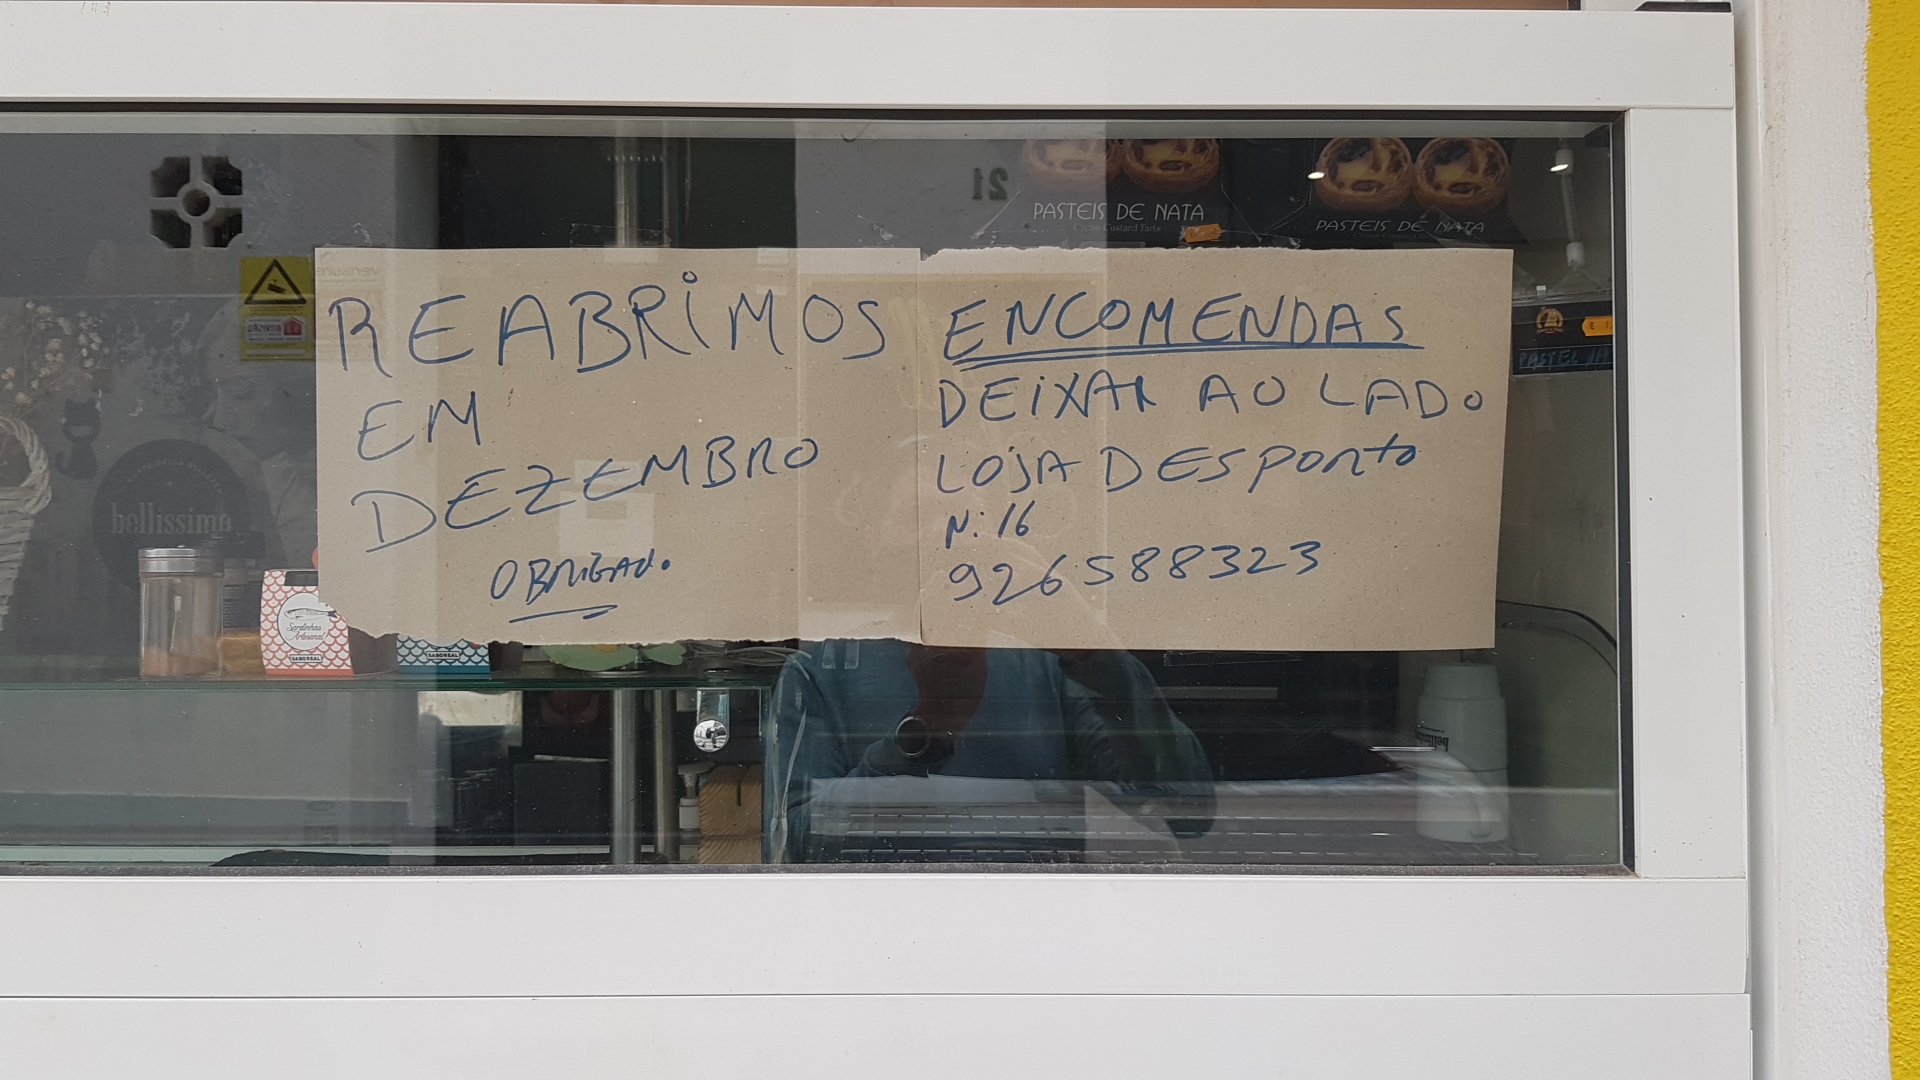 PASTEIS DE NATA
Cream Custard Tarts
PASTEIS DE NATA
Cream Custard Tarts
REABRIMOS
EM
DEZEMBRO
OBRIGADO.
ENCOMENDAS
DEIXAR AO LADO
LOJA DESPORTO
N. 16
926588323
21
PASTEL
bellissimo
Sardinhas
Artesanal
SABOREAL
SABOREAL